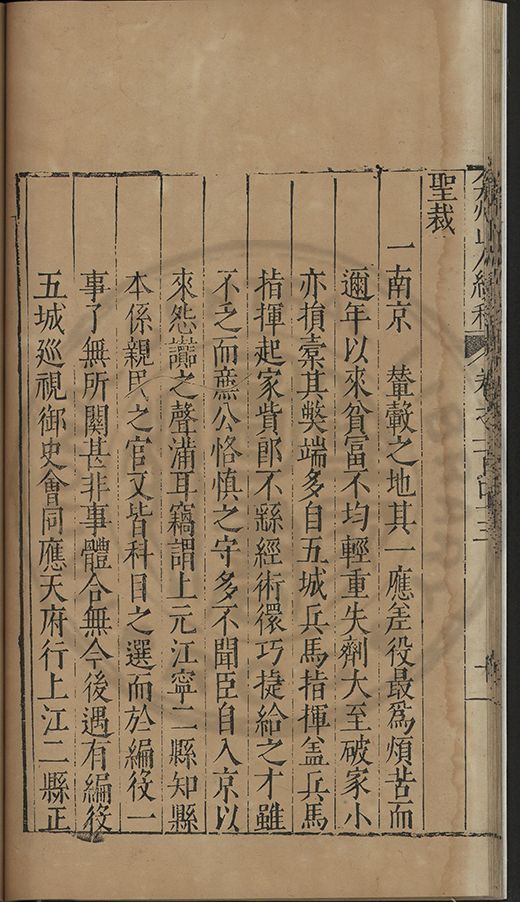 弇州山人續稿 卷之一百四十三
聖裁
一南京 輦轂之地其一應差役最爲煩苦而
邇年以來貧富不均輕重失劑大至破家小
亦損橐其獘端多自五城兵馬指揮盖兵馬
指揮起家貲郎不繇經術儇巧捷給之才雖
不乏而亷公恪慎之守多不聞臣自入京以
來怨讟之聲滿耳竊謂上元江寧二縣知縣
本係親民之官又皆科目之選而於編役一
事了無所関甚非事體合無今後遇有編役
五城廵視御史會同應天府行上江二縣正